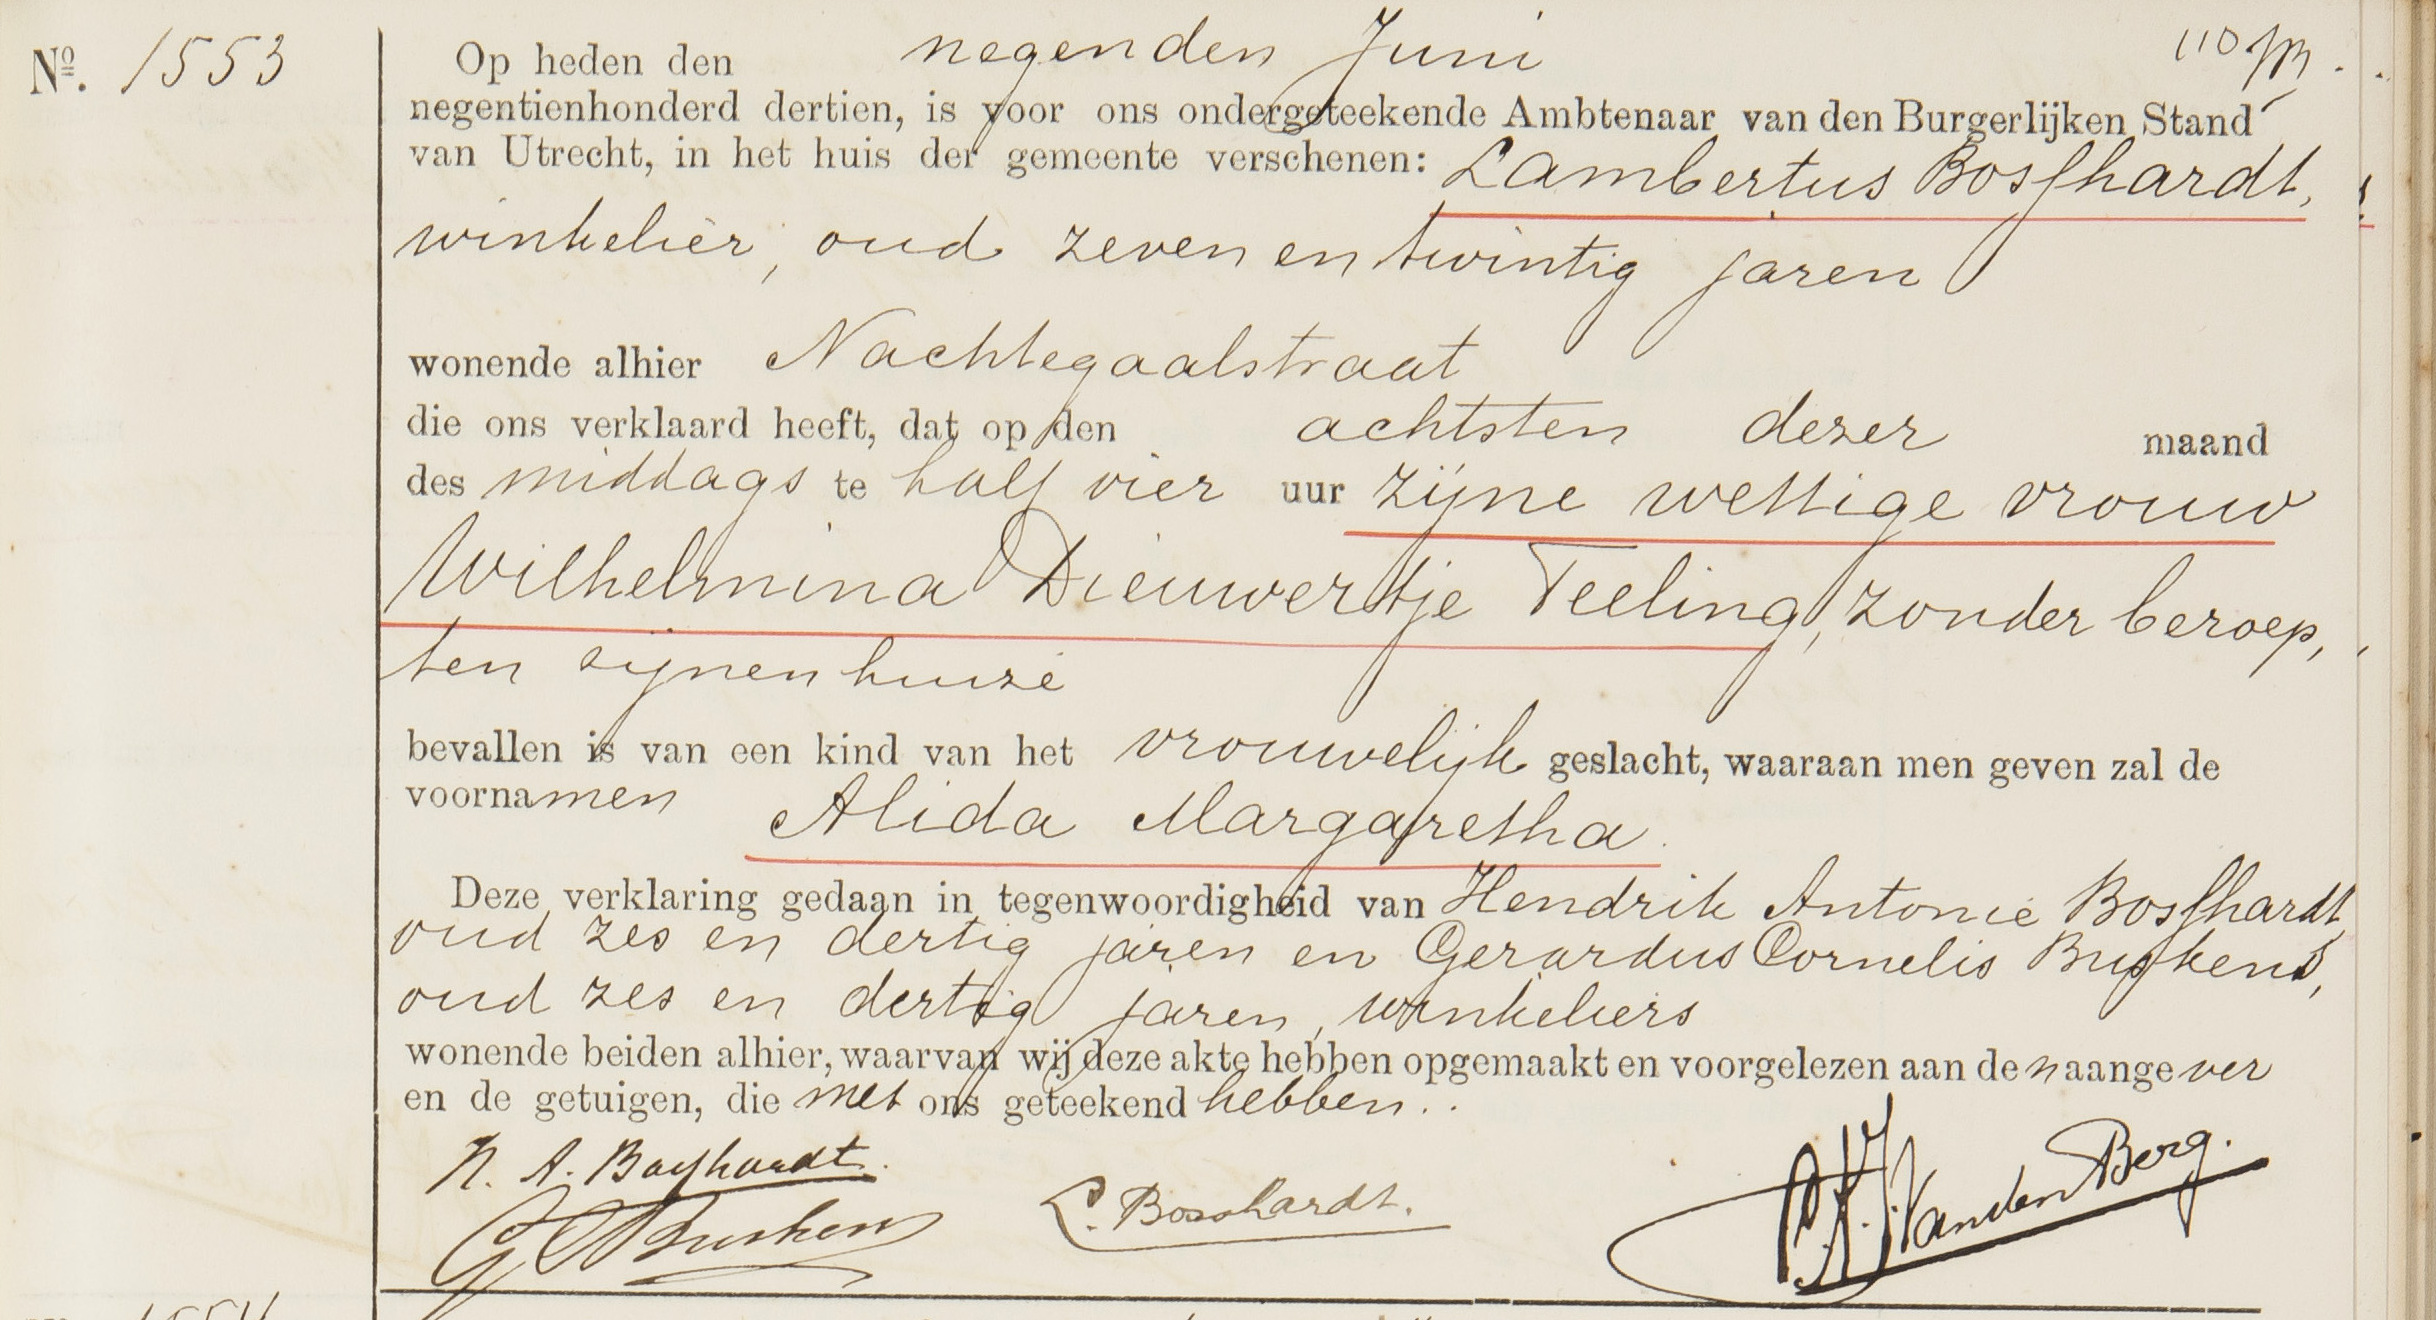 Nº. 1553
Op heden den negenden Juni
negentienhonderd dertien, is voor ons ondergeteekende Ambtenaar van den Burgerlijken Stand
van Utrecht, in het huis der gemeente verschenen: Lambertus Bosshardt,
winkelier, oud zeven en twintig jaren
wonende alhier Nachtegaalstraat
die ons verklaard heeft, dat op den achtsten dezer maand
des middags te half vier uur zijne wettige vrouw
Wilhelmina Dieuwertje Teeling, zonder beroep,
ten zijnen huize
bevallen is van een kind van het vrouwelijk geslacht, waaraan men geven zal de
voornamen Alida Margaretha.
Deze verklaring gedaan in tegenwoordigheid van Hendrik Antonie Bosshardt
oud zes en dertig jaren en Gerardus Cornelis Buskens,
oud zes en dertig jaren, winkeliers
wonende beiden alhier, waarvan wij deze akte hebben opgemaakt en voorgelezen aan den aangever
en de getuigen, die met ons geteekend hebben..
H. A. Bosshardt.
L. Bosshardt.
Van den Berg.
G C Buskens